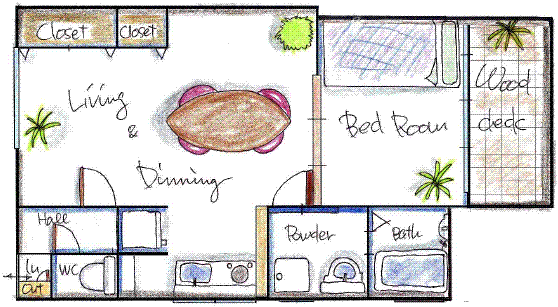 Closet
Closet
Living
&
Dinning
Bed Room
Wood
deck
Hall
Powder
Bath
In
Out
WC